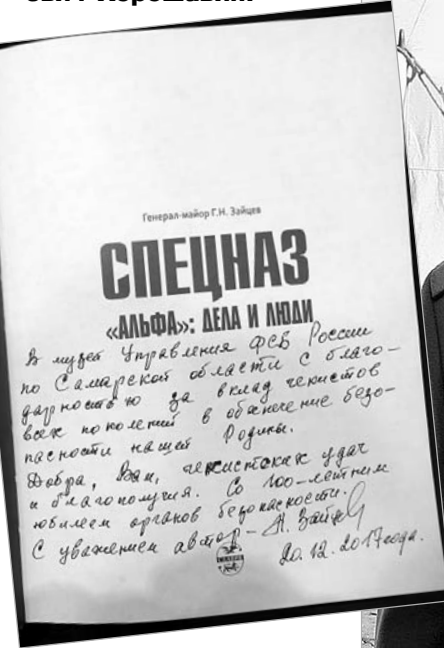 Генерал-майор Г.Н. Зайцев
СПЕЦНАЗ
«АЛЬФА»: ДЕЛА И ЛЮДИ
В музей Управления ФСБ России
по Самарской области с благо-
дарностью за вклад чекистов
всех поколений в обеспечение безо-
пасности нашей Родины.
Добра, Вам, чекистских удач
и благополучия. Со 100-летним
юбилеем органов безопасности.
С уважением автор – Зайцев
20.12.2017 года.